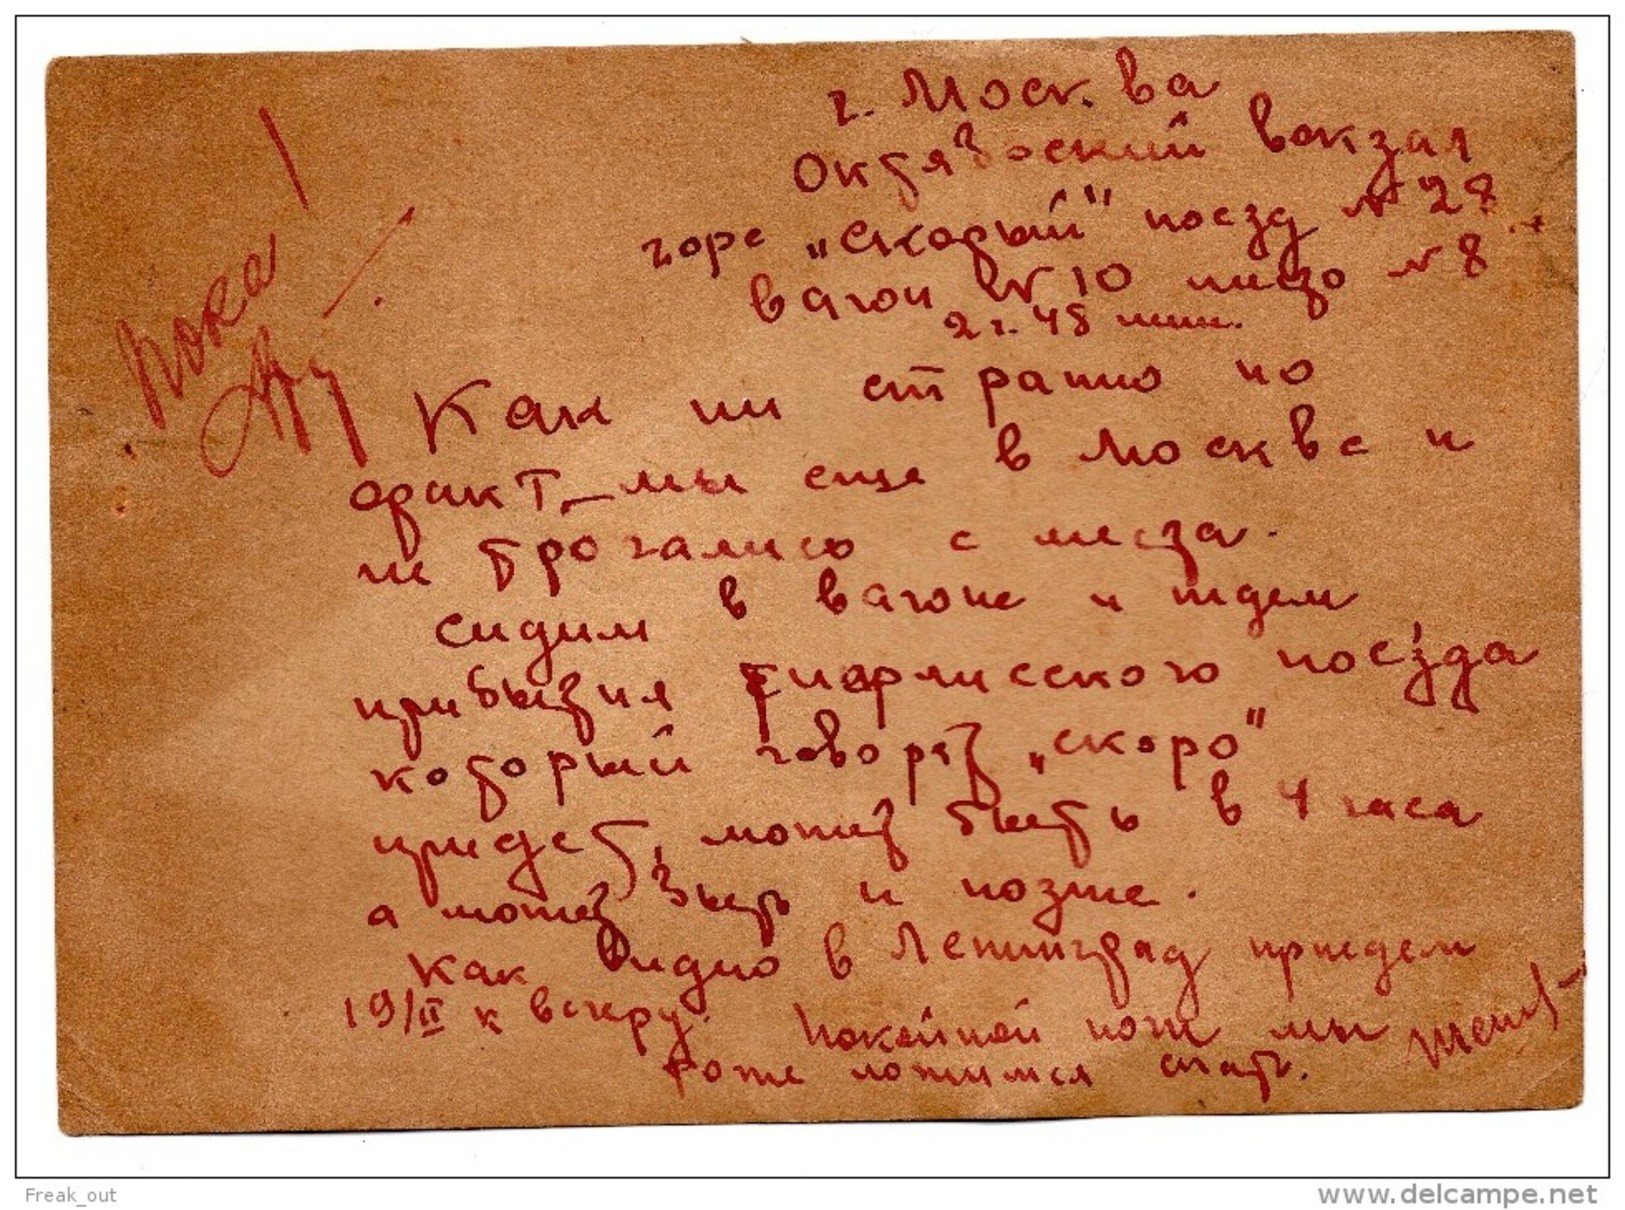 г. Москва
Октябрьский вокзал
горе „скорый" поезд № 28
вагон № 10 място № 8
2 г. 48 мин.
Как ни странно но
факт, – мы еще в Москве и
не трогались с места.
Сидим в вагоне и ждем
прибытия тифлисского поезда
который говорят „скоро"
придет, может быть в 4 часа
а может быть и позже.
Как видно в Ленинград приедем
19/II к вечеру. Покойной ночи мы
тоже ложимся спать.
Пока!
Freak_out
www.delcampe.net